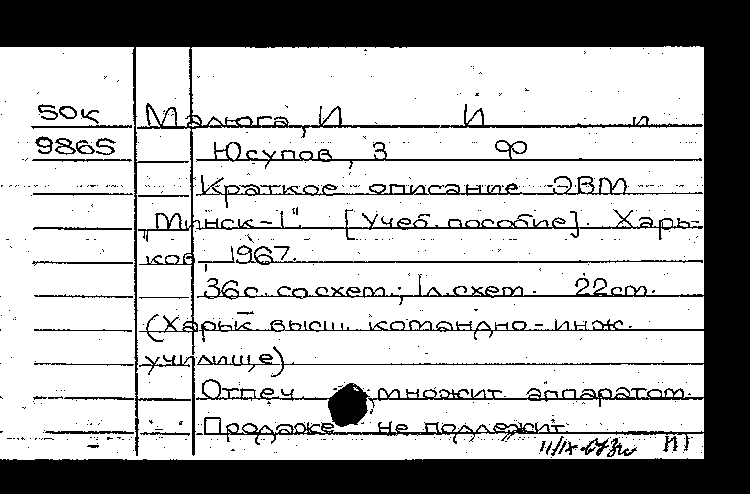 50к Малюга, И И и
9865 Юсупов, З Ф
Краткое описание ЭВМ
"Минск-1". [Учеб. пособие]. Харь-
ков, 1967.
36с. со схем.; 1л. схем. 22см.
(Харьк. высш. командно-инж.
училище).
Отпеч. множит. аппаратом.
Продаже не подлежит